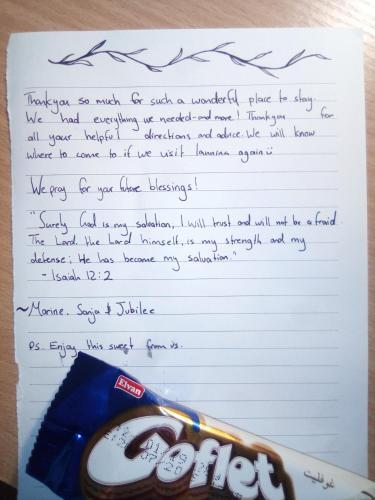 Thankyou so much for such a wonderful place to stay.
We had everything we needed-and more! Thankyou for
all your helpful directions and advice. We will know
where to come to if we visit Iannina again ü
We pray for your future blessings!
"Surely God is my salvation, I will trust and will not be afraid.
The Lord, the Lord himself, is my strength and my
defense; He has become my salvation."
- Isaiah 12:2
~ Marine, Sonja & Jubilee
P.S. Enjoy this sweet from us.
Elvan
Coflet
غوفليت